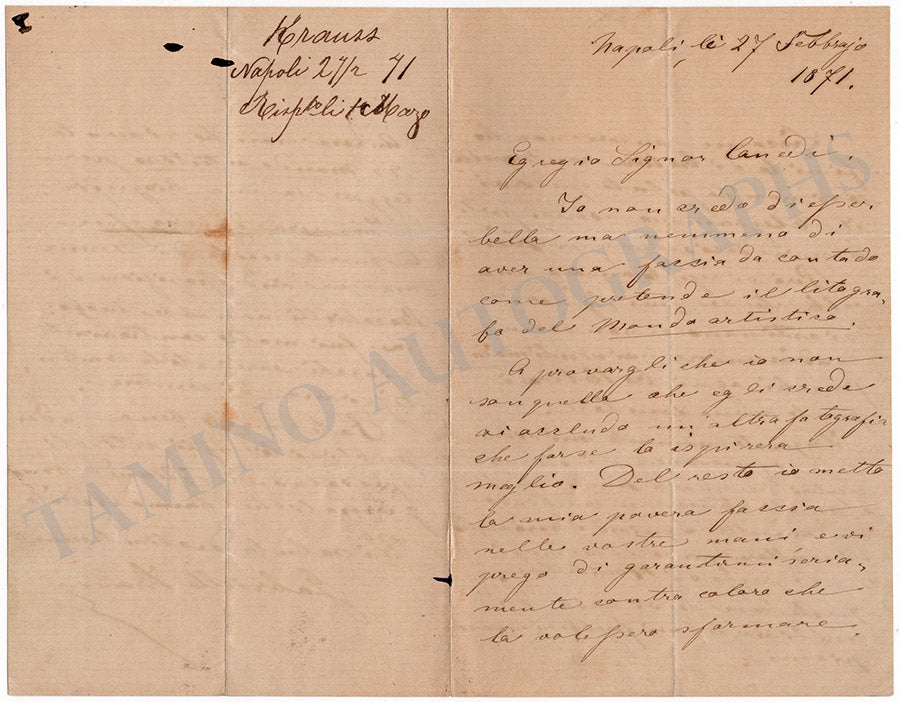 Krauss
Napoli 27/2 71
Rispto li 1 Marzo
Napoli, li 27 Febbrajo
1871.
Egregio Signor Canedi.
Io non credo di esser
bella ma nemmeno di
aver una faccia da contado
come pretende il litogra-
fo del Mondo artistico.
A provargli che io non
son quella che egli crede
vi accludo un altra fotografia
che forse lo ispirera
meglio. Del resto io metto
la mia povera faccia
nelle vostre mani e vi
prego di garantirmi seria-
mente contro coloro che
la volessero sformare.
TAMINO AUTOGRAPHS